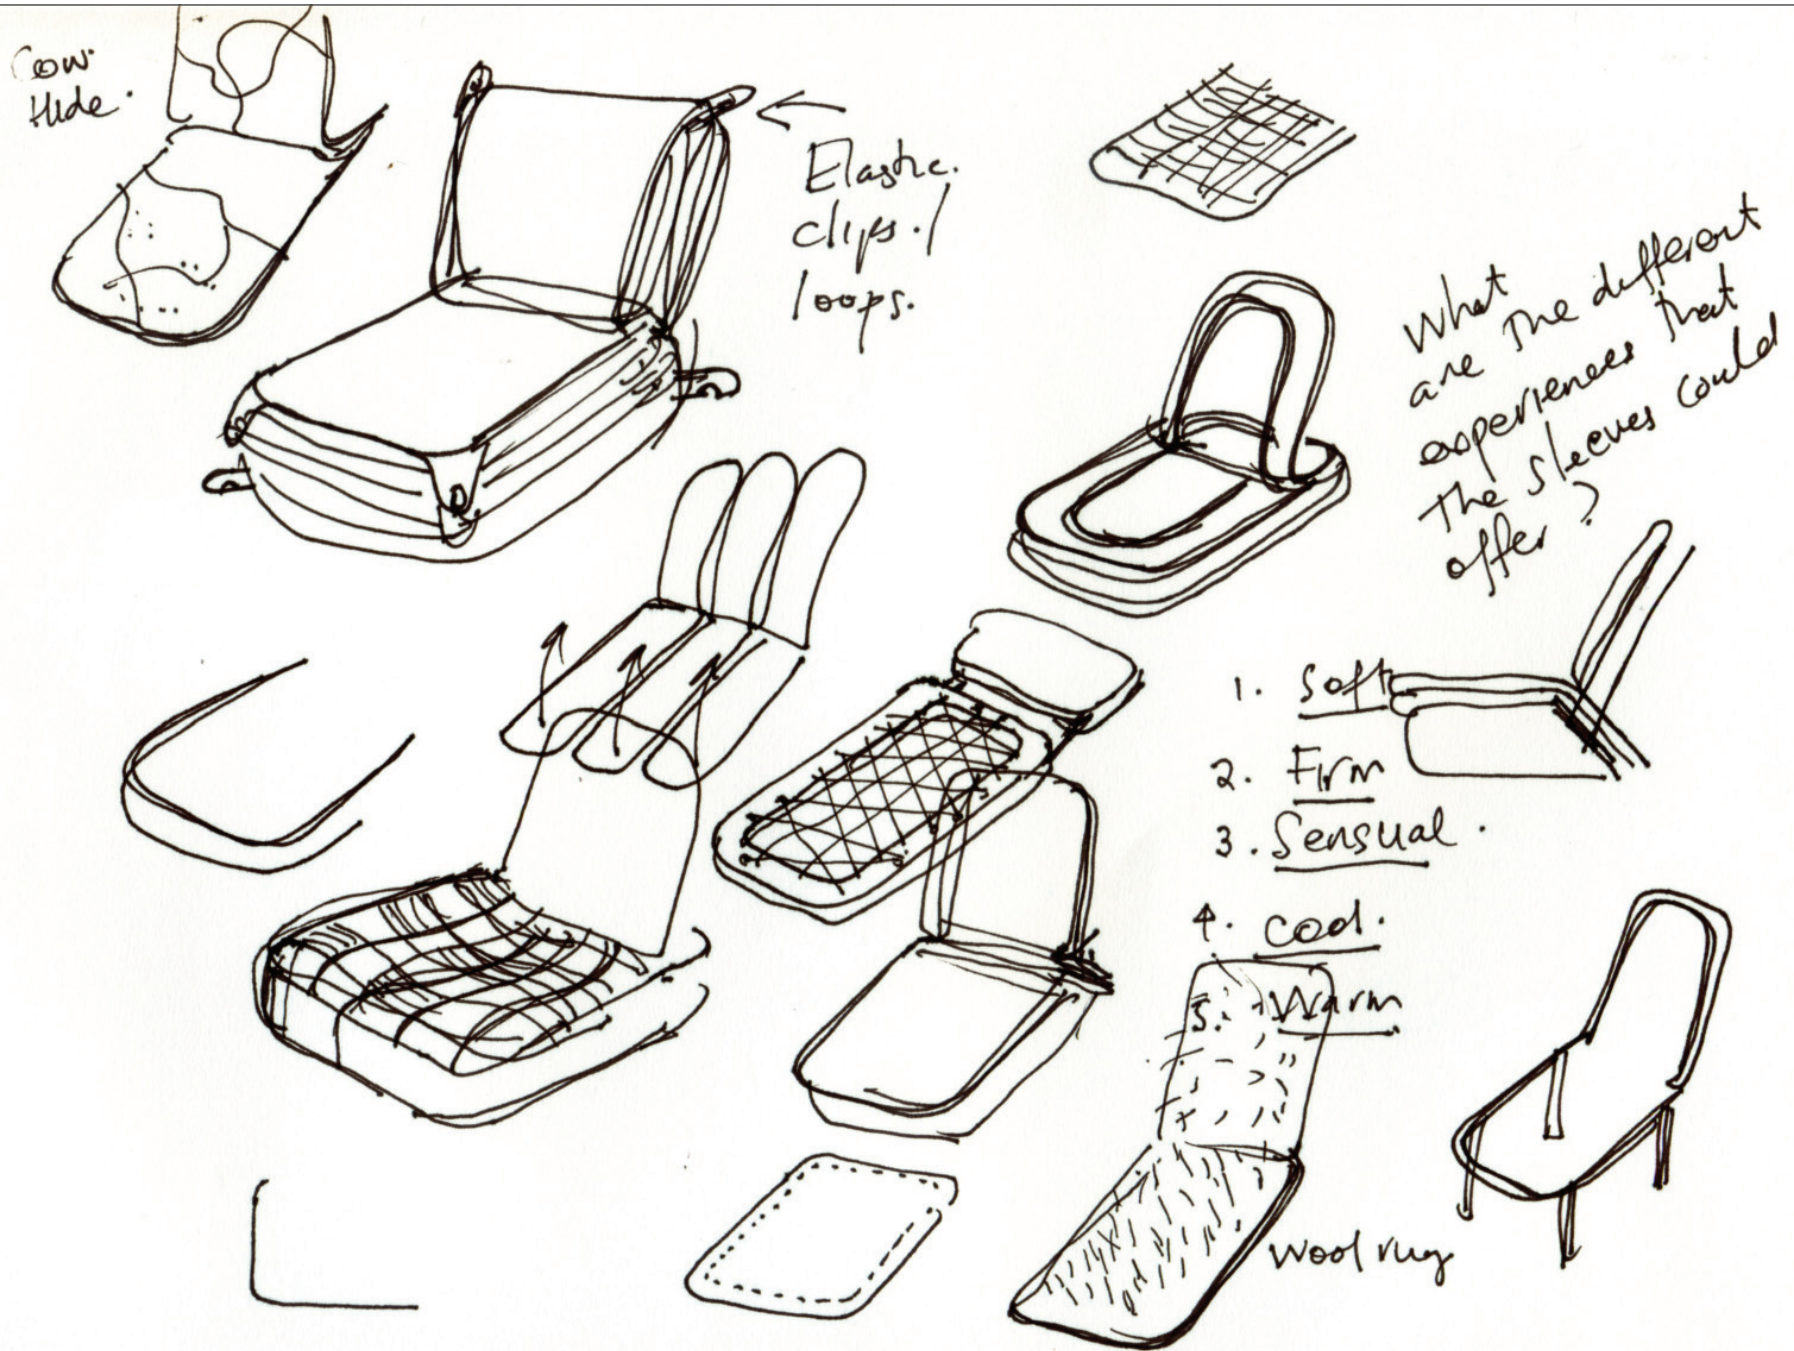 Cow
Hide.
Elastic.
clips./
loops.
What
are The different
experiences that
The sleeves could
offer?
1. Soft
2. Firm
3. Sensual.
4. cool.
5. Warm
Wool rug